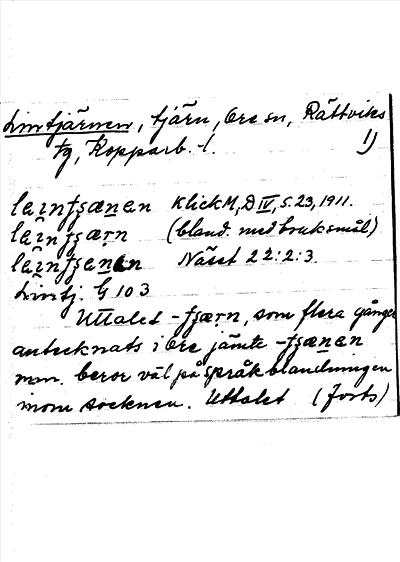 Limtjärnen, tjärn, Ore sn, Rättviks
tg, Kopparb. l. 1)
Klick M, D IV, S. 23, 1911.
(bland. med bruksmål)
Näset 22:2:3.
Limtj. G 103
Uttalet -tjærn, som flera gånger
antecknats i Ore jämte -tjænen
mm. beror väl på språkblandningen
inom socknen. Uttalet (forts)